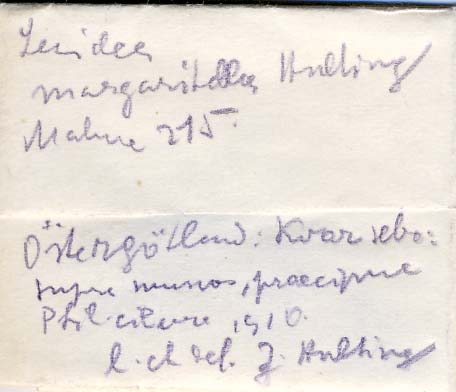 Lecidea
margaritella Hulting
Malme 215.
Östergötland: Kvarsebo:
supra muscos, præcipue
Ptil. ciliare, 1910.
l. et det. J. Hulting